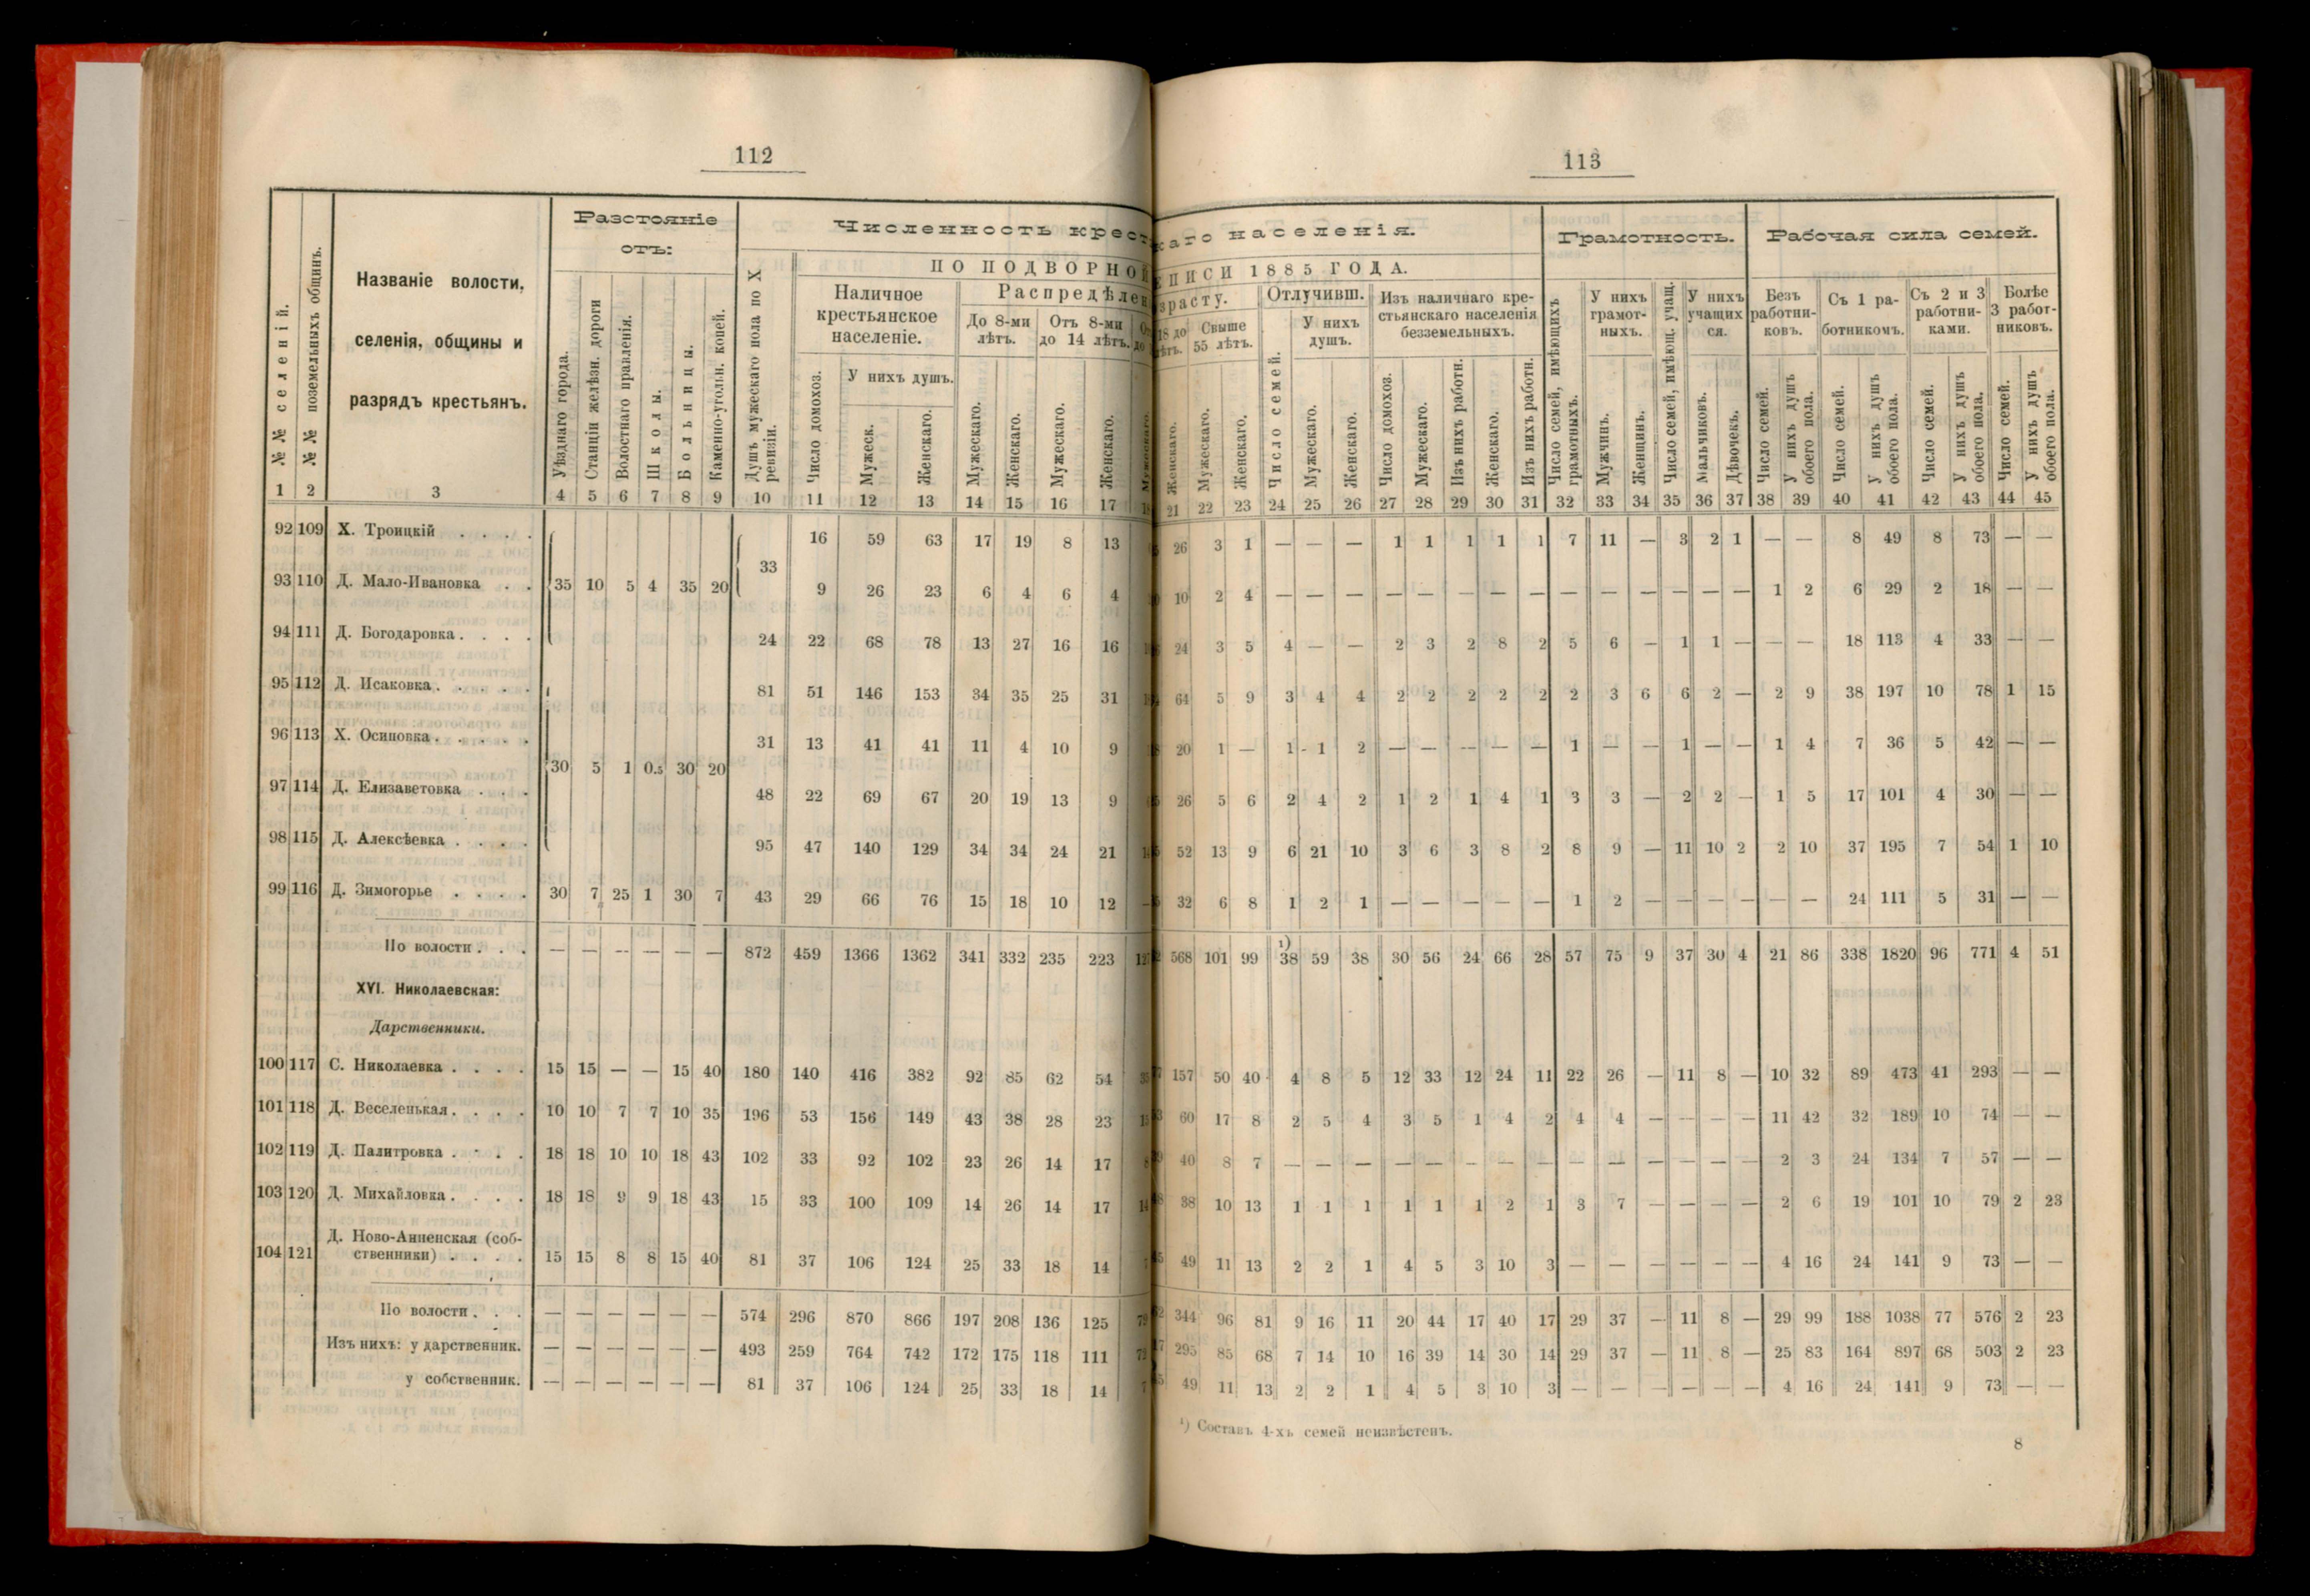 112
Разстояніе
отъ:
Численность крест
№№ селеній.
№№ поземельныхъ общинъ.
Названіе волости,
селенія, общины и
разрядъ крестьянъ.
Уѣзднаго города.
Станціи желѣзн. дороги
Волостнаго правленія.
Школы.
Больницы.
Каменно-угольн. копей.
Душъ мужескаго пола по X ревизіи.
ПО ПОДВОРНОЙ
Наличное
крестьянское
населеніе.
Распредѣлен
До 8-ми лѣтъ.
Отъ 8-ми до 14 лѣтъ.
Число домохоз.
У нихъ душъ.
Мужеск.
Женскаго.
Мужескаго.
Женскаго.
Мужескаго.
Женскаго.
1 2 3 4 5 6 7 8 9 10 11 12 13 14 15 16 17
92 109 Х. Троицкій . . . . 16 59 63 17 19 8 13
33
93 110 Д. Мало-Ивановка . . 35 10 5 4 35 20 9 26 23 6 4 6 4
94 111 Д. Богодаровка . . . . 24 22 68 78 13 27 16 16
95 112 Д. Исаковка . . . . . 81 51 146 153 34 35 25 31
96 113 Х. Осиповка . . . . . 31 13 41 41 11 4 10 9
30 5 1 0.5 30 20
97 114 Д. Елизаветовка . . . 48 22 69 67 20 19 13 9
98 115 Д. Алексѣевка . . . . 95 47 140 129 34 34 24 21
99 116 Д. Зимогорье . . . . 30 7 25 1 30 7 43 29 66 76 15 18 10 12 —
По волости . . . — — — — — — 872 459 1366 1362 341 332 235 223
XVI. Николаевская:
Дарственники.
100 117 С. Николаевка . . . . 15 15 — — 15 40 180 140 416 382 92 85 62 54
101 118 Д. Веселенькая . . . . 10 10 7 7 10 35 196 53 156 149 43 38 28 23
102 119 Д. Палитровка . . . . 18 18 10 10 18 43 102 33 92 102 23 26 14 17
103 120 Д. Михайловка . . . . 18 18 9 9 18 43 15 33 100 109 14 26 14 17
Д. Ново-Анненская (соб-
104 121 ственники) . . . . 15 15 8 8 15 40 81 37 106 124 25 33 18 14
По волости . . . — — — — — — 574 296 870 866 197 208 136 125
Изъ нихъ: у дарственник. — — — — — — 493 259 764 742 172 175 118 111
у собственник. — — — — — — 81 37 106 124 25 33 18 14
113
каго населенія.
Грамотность.
Рабочая сила семей.
ПИСИ 1885 ГОДА.
зрасту.
18 до
Свыше 55 лѣтъ.
Отлучивш.
У нихъ душъ.
Изъ наличнаго кре-
стьянскаго населенія
безземельныхъ.
Женскаго.
Мужескаго.
Женскаго.
Число семей.
Мужескаго.
Женскаго.
Число домохоз.
Мужескаго.
Изъ нихъ работн.
Женскаго.
Изъ нихъ работн.
Число семей, имѣющихъ грамотныхъ.
У нихъ грамот-
ныхъ.
Мужчинъ.
Женщинъ.
Число семей, имѣющ. учащ.
У нихъ учащих
ся.
Мальчиковъ.
Дѣвочекъ.
Безъ работни-
ковъ.
Число семей.
У нихъ душъ обоего пола.
Съ 1 ра-
ботникомъ.
Число семей.
У нихъ душъ обоего пола.
Съ 2 и 3 работни-
ками.
Число семей.
У нихъ душъ обоего пола.
Болѣе 3 работ-
никовъ.
Число семей.
У нихъ душъ обоего пола.
21 22 23 24 25 26 27 28 29 30 31 32 33 34 35 36 37 38 39 40 41 42 43 44 45
26 3 1 — — — 1 1 1 1 1 7 11 — 3 2 1 — — 8 49 8 73 — —
10 2 4 — — — — — — — — — — — — — — 1 2 6 29 2 18 — —
24 3 5 4 — — 2 3 2 8 2 5 6 — 1 1 — — — 18 113 4 33 — —
64 5 9 3 4 4 2 2 2 2 2 2 3 6 6 2 — 2 9 38 197 10 78 1 15
20 1 — 1 1 2 — — — — — 1 — — 1 — — 1 4 7 36 5 42 — —
26 5 6 2 4 2 1 2 1 4 1 3 3 — 2 2 — 1 5 17 101 4 30 — —
52 13 9 6 21 10 3 6 3 8 2 8 9 — 11 10 2 2 10 37 195 7 54 1 10
32 6 8 1 2 1 — — — — — 1 2 — — — — — — 24 111 5 31 — —
568 101 99 ¹) 38 59 38 30 56 24 66 28 57 75 9 37 30 4 21 86 338 1820 96 771 4 51
157 50 40 4 8 5 12 33 12 24 11 22 26 — 11 8 — 10 32 89 473 41 293 — —
60 17 8 2 5 4 3 5 1 4 2 4 4 — — — — 11 42 32 189 10 74 — —
40 8 7 — — — — — — — — — — — — — — 2 3 24 134 7 57 — —
38 10 13 1 1 1 1 1 1 2 1 3 7 — — — — 2 6 19 101 10 79 2 23
49 11 13 2 2 1 4 5 3 10 3 — — — — — — 4 16 24 141 9 73 — —
344 96 81 9 16 11 20 44 17 40 17 29 37 — 11 8 — 29 99 188 1038 77 576 2 23
295 85 68 7 14 10 16 39 14 30 14 29 37 — 11 8 — 25 83 164 897 68 503 2 23
49 11 13 2 2 1 4 5 3 10 3 — — — — — — 4 16 24 141 9 73 — —
¹) Составъ 4-хъ семей неизвѣстенъ.
8